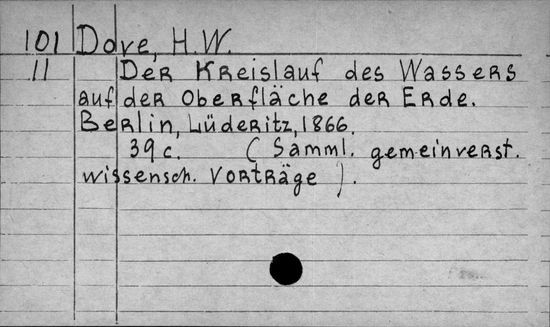 101 Dove, H.W.
11 Der Kreislauf des Wassers
auf der Oberfläche der Erde.
Berlin, Lüderitz, 1866.
39 c. (Samml. gemeinverst.
wissensch. Vorträge).